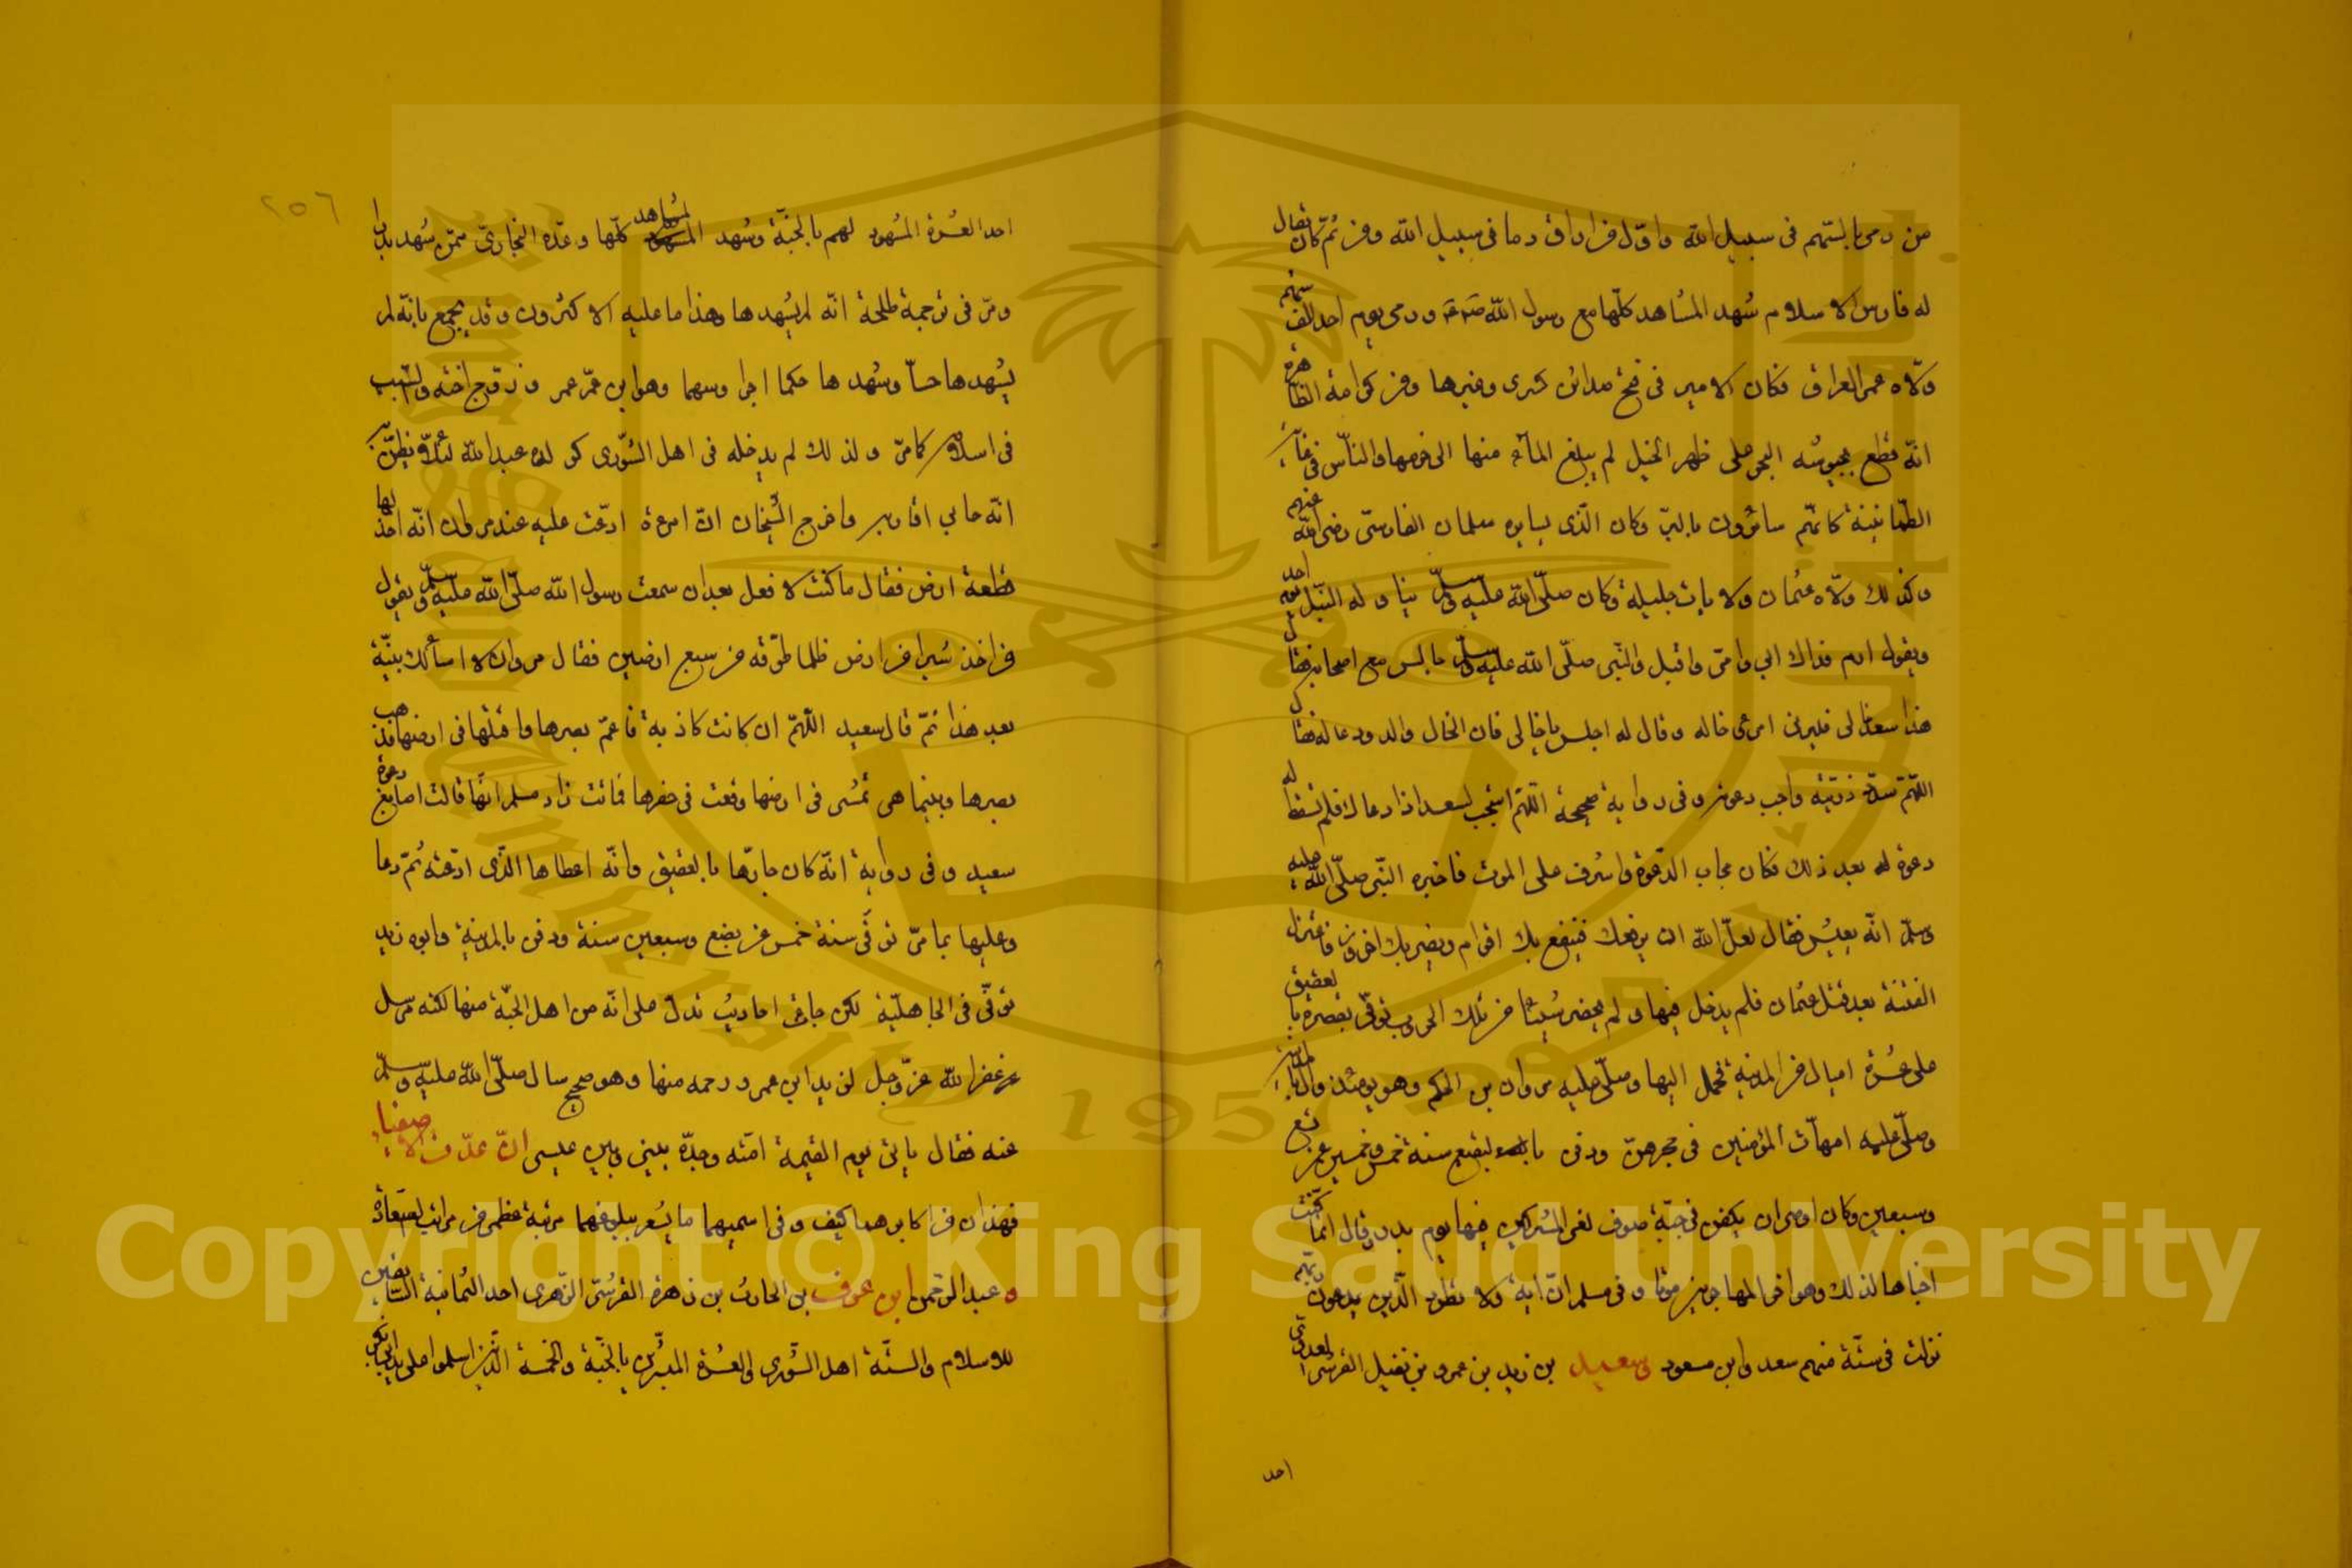 من رمى بالسّهم فى سبيل الله واوّل من اراق دما فى سبيل الله ومن ثمّ كان يقال
له فارس الاسلام شهد المشاهد كلّها مع رسول الله صم ورمى يوم احد الف سهم
ولّاه عمر العراق فكان الامير فى فتح مدائن كسرى وغيرها ومن كرامته الظاهرة
انّه قطع بجيوشه على ظهر الخيل لم يبلغ المآء منها الى حزمها والنّاس فى غاية
الطّمانينة كانّهم سائرون بالبرّ وكان الّذى يسايره سلمان الفارسىّ رضى الله عنهم
وكذلك ولّاه عثمان ولايات جليلة وكان صلّى الله عليه وسلّم يناوله النّبل يوم احد
ويقول ارم فداك ابى وامّى واقبل والنّبى صلّى الله عليه وسلّم جالس مع اصحابه فقال
هذا سعد خالى فليرنى امرء خاله وقال له اجلس يا خالى فان الخال والد ودعا له فقال
اللّهمّ سدّد رميته واجب دعوته وفى رواية صحيحة اللّهمّ استجب لسعد اذا دعاك فلم تسقط له
دعوة له بعد ذلك فكان مجاب الدّعوة واشرف على الموت فاخبره النّبى صلّى الله عليه
وسلّم انّه يعيش فقال لعلّ الله ان يرفعك فينفع بك اقوام ويضر بك اخرون فاعتزل
الفتنة بعد قتل عثمان فلم يدخل فيها ولم يحضر شيئا من تلك الحروب توفّى بقصره بالعقيق
على عشرة اميال من المدينة فحمل اليها وصلّى عليه مروان بن الحكم وهو يومئذ والى المدينة
وصلّى عليه امهات المؤمنين فى حجرهنّ ودفن بالبقيع سنة خمس وخمسين عن تسع
وسبعين وكان اوصى ان يكفن فى جبّة صوف لقى المشركين فيها يوم بدر وقال انما كنت
اخباها لذلك وهو اخر المهاجرين موتا وفى مسلم انّ اية ولا تطرد الّذين يدعون ربّهم
نزلت فى ستّة منهم سعد وابن مسعود وسعيد بن زيد بن عمرو بن نفيل القرشى العدوى
احد
٢٥٦
احد العشرة المشهود لهم بالجنّة وشهد المشاهد كلّها وعدّه البخارىّ ممّن شهد بدرا
ومرّ فى ترجمة طلحة انّه لم يشهدها وهذا ما عليه الاكثرون وقد يجمع بانّه لم
يشهدها حسّا وشهدها حكما اجرا وسهما وهو ابن عمّ عمر وزوج اخته والسّبب
فى اسلامه كما مرّ ولذلك لم يدخله فى اهل الشّورى كولده عبد الله لئلّا يظنّ به
انّه حابى اقاربه واخرج الشّيخان انّ امرءة ادّعت عليه عند مروان انّه اخذ لها
قطعة ارض فقال ما كنت لافعل بعد ان سمعت رسول الله صلّى الله عليه وسلّم يقول
من اخذ شبرا من ارض ظلما طوّقه من سبع ارضين فقال مروان لا اسألك بيّنة
بعد هذا ثمّ قال سعيد اللّهمّ ان كانت كاذبة فاعم بصرها واقتلها فى ارضها فذهب
بصرها وبينما هى تمشى فى ارضها وقعت فى حفرها فماتت زاد مسلم انّها قالت اصابتنى دعوة
سعيد وفى رواية انّه كان جارها بالعقيق وانّه اعطاها الّذى ادّعته ثمّ دعا
وعليها بما مرّ توفّى سنة خمس عن بضع وسبعين سنة ودفن بالمدينة وابوه زيد
توفّى فى الجاهليّة لكن جاءت احاديث تدلّ على انّه من اهل الجنّة منها لكنه مرسل
غفر الله عزّ وجلّ لزيد ابن عمرو ورحمه منها وهو صحيح سال صلّى الله عليه وسلّم
عنه فقال ياتى يوم القيمة امّته وحدّه بينى وبين عيسى انّ
فهذان من اكابرهما كيف وفى اسميهما ما يشعر ببلوغهما مرتبة عظمى من مراتب السّعادة
وعبد الرّحمن ابن عوف بن الحارث بن زهرة القرشىّ الزّهرى احد الثّمانية السّابقين
للاسلام والستّة اهل الشّورى والعشرة المبشّرين بالجنّة والخمسة الّذين اسلموا على يد ابى بكر
Copyright © King Saud University
1957